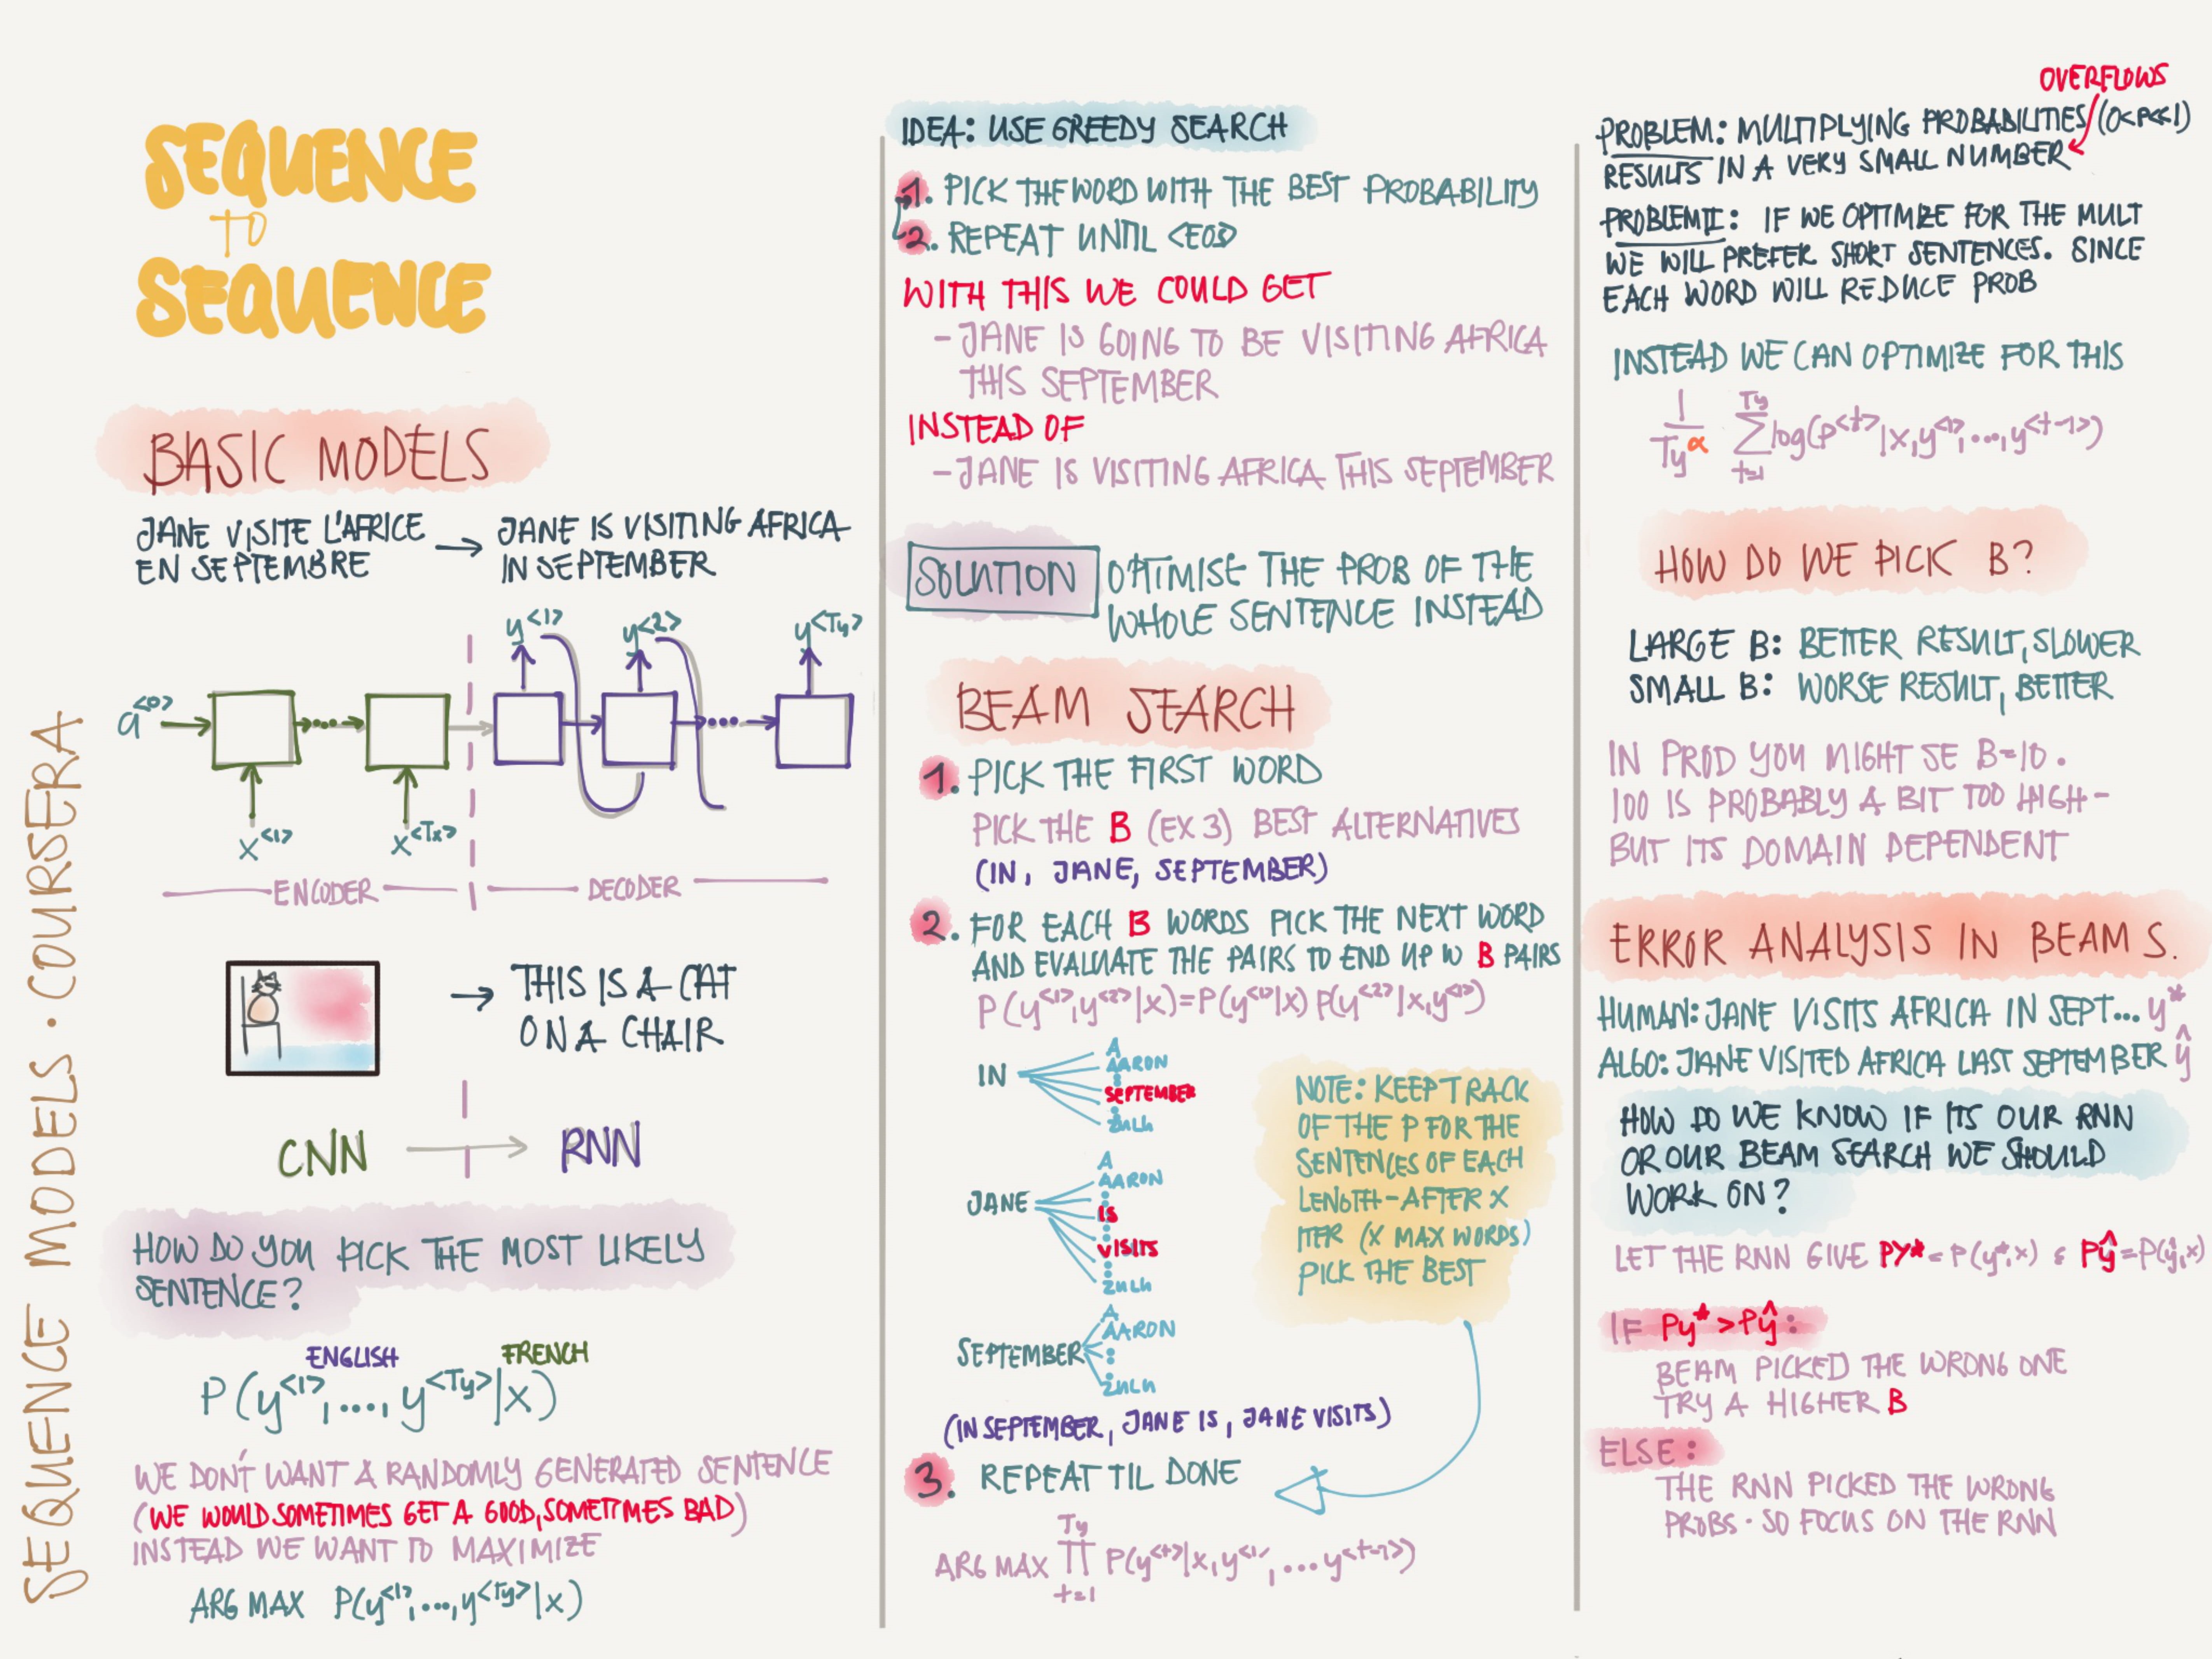 SEQUENCE MODELS · COURSERA
SEQUENCE
TO
SEQUENCE
BASIC MODELS
JANE VISITE L'AFRICE
EN SEPTEMBRE
→ JANE IS VISITING AFRICA
IN SEPTEMBER
y<1>
y<2>
y<Ty>
a<0>
x<1>
x<Tx>
ENCODER
DECODER
→ THIS IS A CAT
ON A CHAIR
CNN → RNN
HOW DO YOU PICK THE MOST LIKELY
SENTENCE?
ENGLISH FRENCH
P(y<1>, ..., y<Ty>|x)
WE DON'T WANT A RANDOMLY GENERATED SENTENCE
(WE WOULD SOMETIMES GET A GOOD, SOMETIMES BAD)
INSTEAD WE WANT TO MAXIMIZE
ARG MAX P(y<1>, ..., y<Ty>|x)
IDEA: USE GREEDY SEARCH
1. PICK THE WORD WITH THE BEST PROBABILITY
2. REPEAT UNTIL <EOS>
WITH THIS WE COULD GET
- JANE IS GOING TO BE VISITING AFRICA
THIS SEPTEMBER
INSTEAD OF
- JANE IS VISITING AFRICA THIS SEPTEMBER
SOLUTION OPTIMISE THE PROB OF THE
WHOLE SENTENCE INSTEAD
BEAM SEARCH
1. PICK THE FIRST WORD
PICK THE B (EX 3) BEST ALTERNATIVES
(IN, JANE, SEPTEMBER)
2. FOR EACH B WORDS PICK THE NEXT WORD
AND EVALUATE THE PAIRS TO END UP W B PAIRS
P(y<1>, y<2>|x)=P(y<1>|x) P(y<2>|x,y<1>)
IN
A
AARON
SEPTEMBER
ZULU
JANE
A
AARON
IS
VISITS
ZULU
SEPTEMBER
A
AARON
ZULU
NOTE: KEEP TRACK
OF THE P FOR THE
SENTENCES OF EACH
LENGTH - AFTER X
ITER (X MAX WORDS)
PICK THE BEST
(IN SEPTEMBER, JANE IS, JANE VISITS)
3. REPEAT TIL DONE
Ty
ARG MAX ∏ P(y<t>|x,y<1>, ... y<t-1>)
t=1
OVERFLOWS
PROBLEM: MULTIPLYING PROBABILITIES (0<P<<1)
RESULTS IN A VERY SMALL NUMBER
PROBLEM II: IF WE OPTIMIZE FOR THE MULT
WE WILL PREFER SHORT SENTENCES. SINCE
EACH WORD WILL REDUCE PROB
INSTEAD WE CAN OPTIMIZE FOR THIS
1 Ty
Ty^α ∑ log(P<t>|x,y<1>, ..., y<t-1>)
t=1
HOW DO WE PICK B?
LARGE B: BETTER RESULT, SLOWER
SMALL B: WORSE RESULT, BETTER
IN PROD YOU MIGHT SE B=10.
100 IS PROBABLY A BIT TOO HIGH -
BUT ITS DOMAIN DEPENDENT
ERROR ANALYSIS IN BEAM S.
HUMAN: JANE VISITS AFRICA IN SEPT... y*
ALGO: JANE VISITED AFRICA LAST SEPTEMBER ŷ
HOW DO WE KNOW IF ITS OUR RNN
OR OUR BEAM SEARCH WE SHOULD
WORK ON?
LET THE RNN GIVE PY* = P(y*,x) & Pŷ = P(ŷ,x)
IF Py* > Pŷ:
BEAM PICKED THE WRONG ONE
TRY A HIGHER B
ELSE:
THE RNN PICKED THE WRONG
PROBS · SO FOCUS ON THE RNN